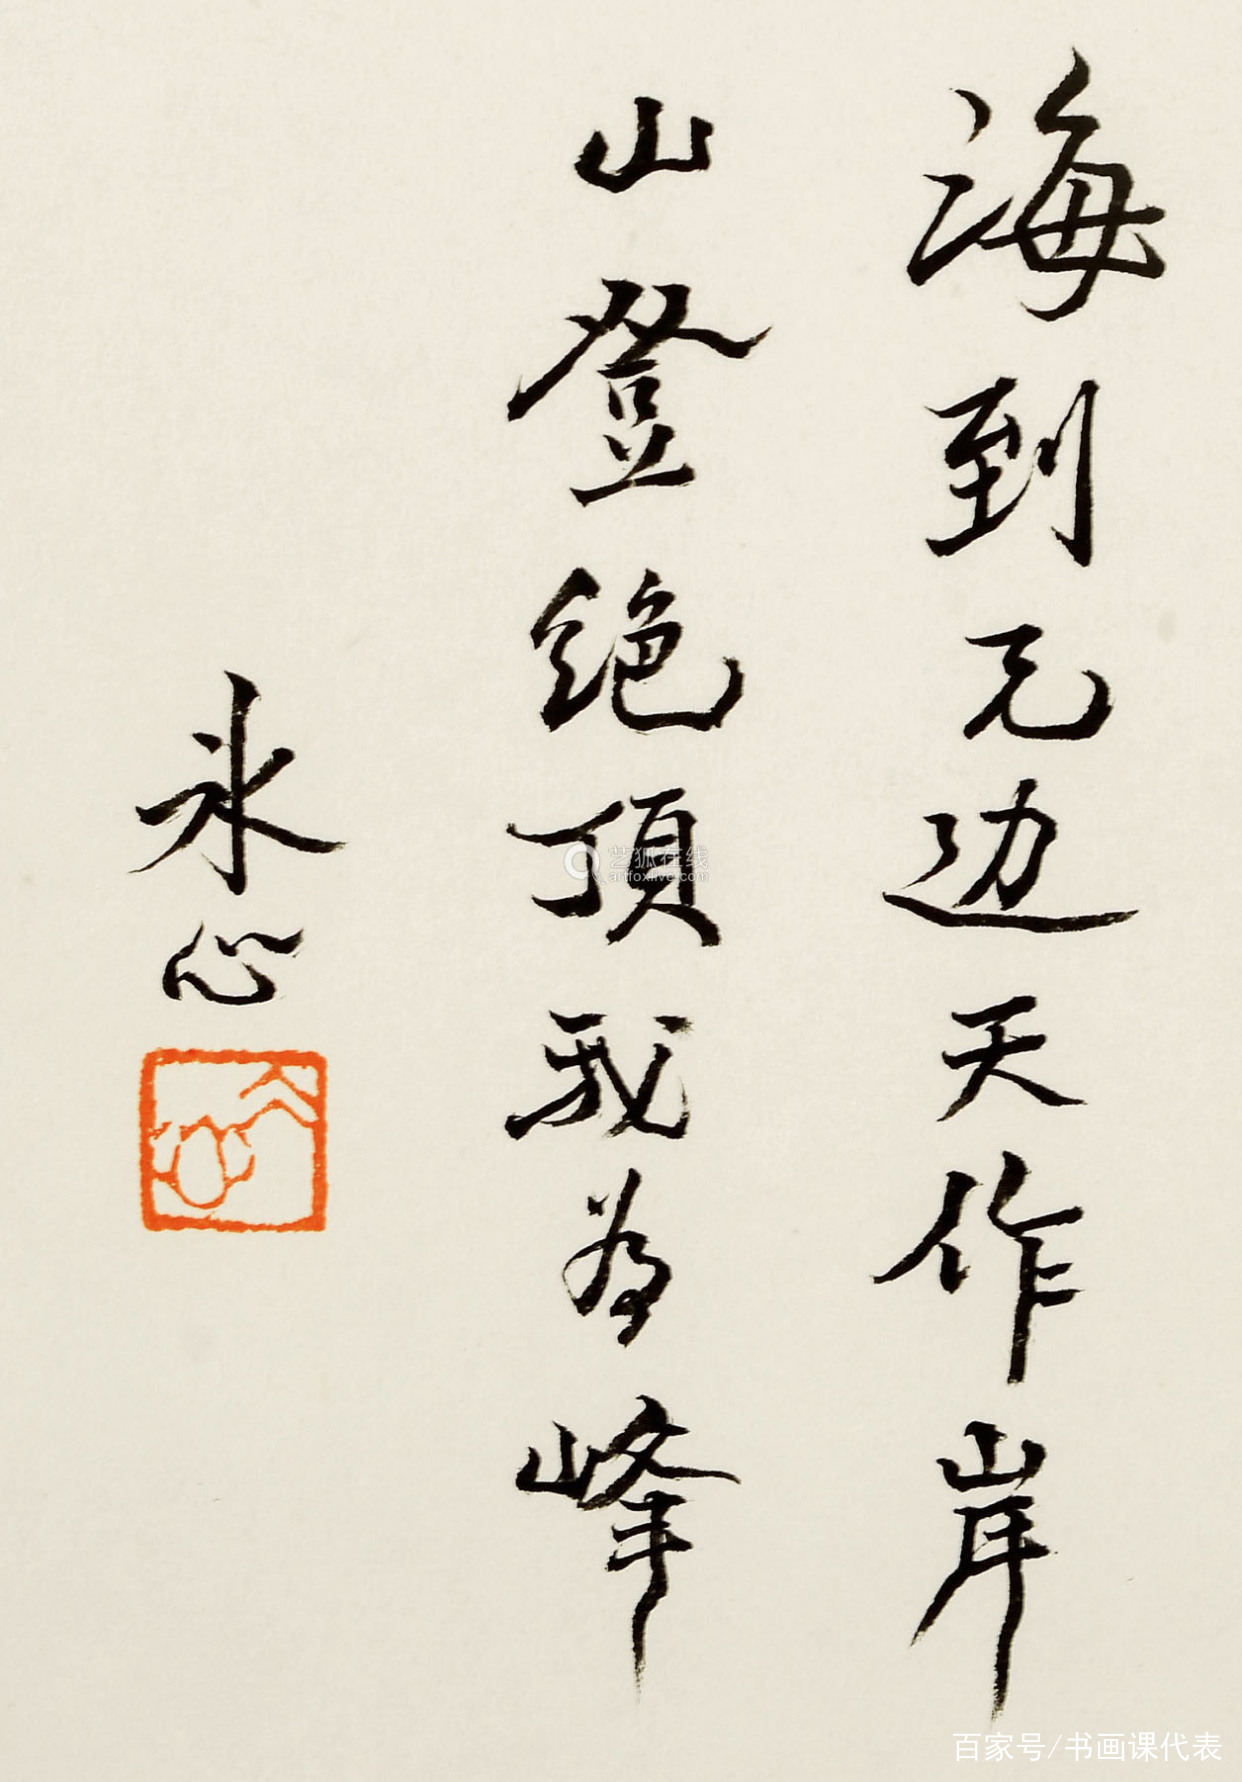 海到无边天作岸
山登绝顶我为峰
冰心
艺狐在线
artfoxlive.com
百家号/书画课代表